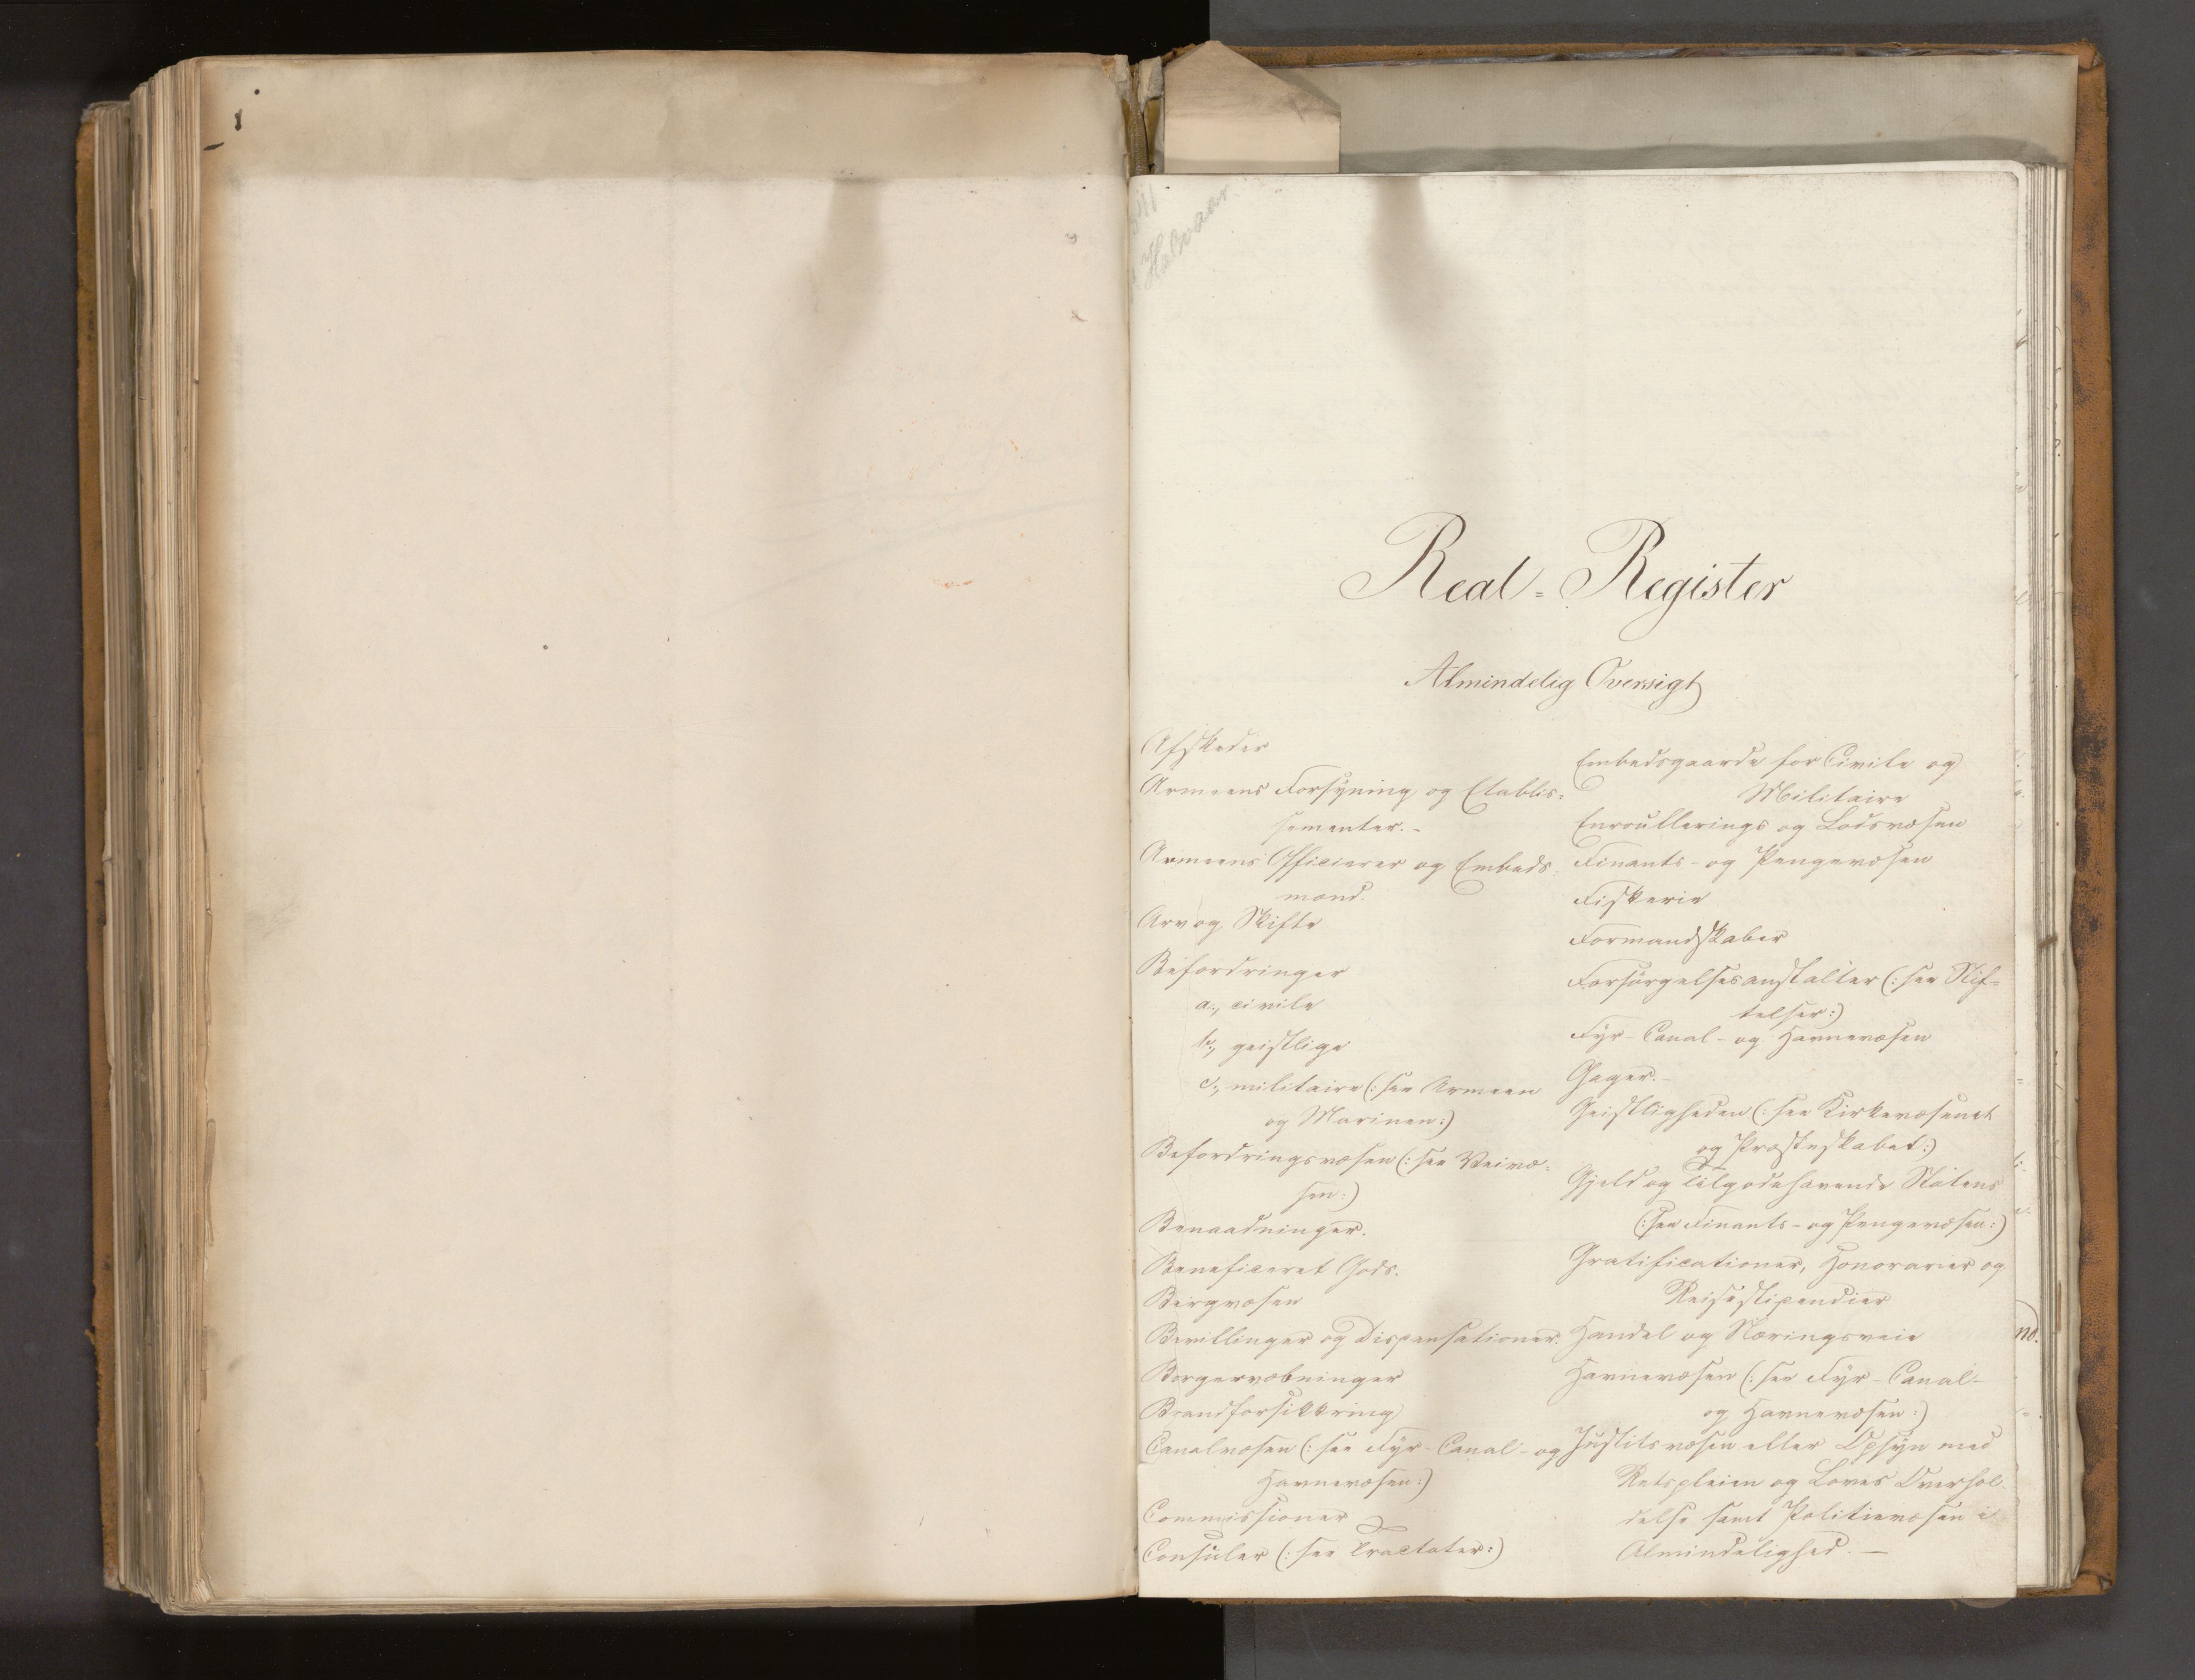 Halvaar
Real-Register
Almindelig Oversigt
Afskeder
Armeens Forsyning og Etablis-
sementer.-
Armeens Officierer og Embeds-
mænd.
Arv og Skifte
Befordringer
a., civile
b., geistlige
c., militaire (: see Armeen
og Marinen :)
Befordringsvæsen (: see Veivæ-
sen :)
Benaadninger.
Beneficeret Gods.
Bergvæsen
Bevillinger og Dispensationer.
Borgervæbninger
Brandforsikkring
Canalvæsen (: see Fyr- Canal- og
Havnevæsen :)
Commissioner
Consuler (: see Tractater :)
Embedsgaarde for Civile og
Militaire
Enroullerings og Lodsvæsen
Finants- og Pengevæsen
Fiskerie
Formandskaber
Forsørgelsesanstalter (: see Stif-
telser :)
Fyr- Canal- og Havnevæsen
Gager.-
Geistligheden (: see Kirkevæsenet
og Præsteskabet :)
Gjeld og Tilgodehavende Statens
(: see Finants- og Pengevæsen :)
Gratificationer, Honorarier og
Reisestipendier
Handel og Næringsveie
Havnevæsen (: see Fyr- Canal-
og Havnevæsen :)
Justitsvæsen eller Opsyn med
Retspleien og Loves Overhol-
delse samt Politievæsen i
Almindelighed.-